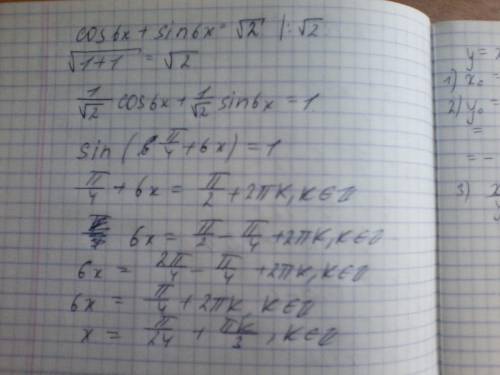 cos6x + sin6x = √2 |:√2
√1+1 = √2
1/√2 cos6x + 1/√2 sin6x = 1
sin (π/4 + 6x) = 1
π/4 + 6x = π/2 + 2πk, k∈Z
6x = π/2 - π/4 + 2πk, k∈Z
6x = 2π/4 - π/4 + 2πk, k∈Z
6x = π/4 + 2πk, k∈Z
x = π/24 + πk/3, k∈Z
y =
1) x₀ =
2) y₀ =
=
= -
3)